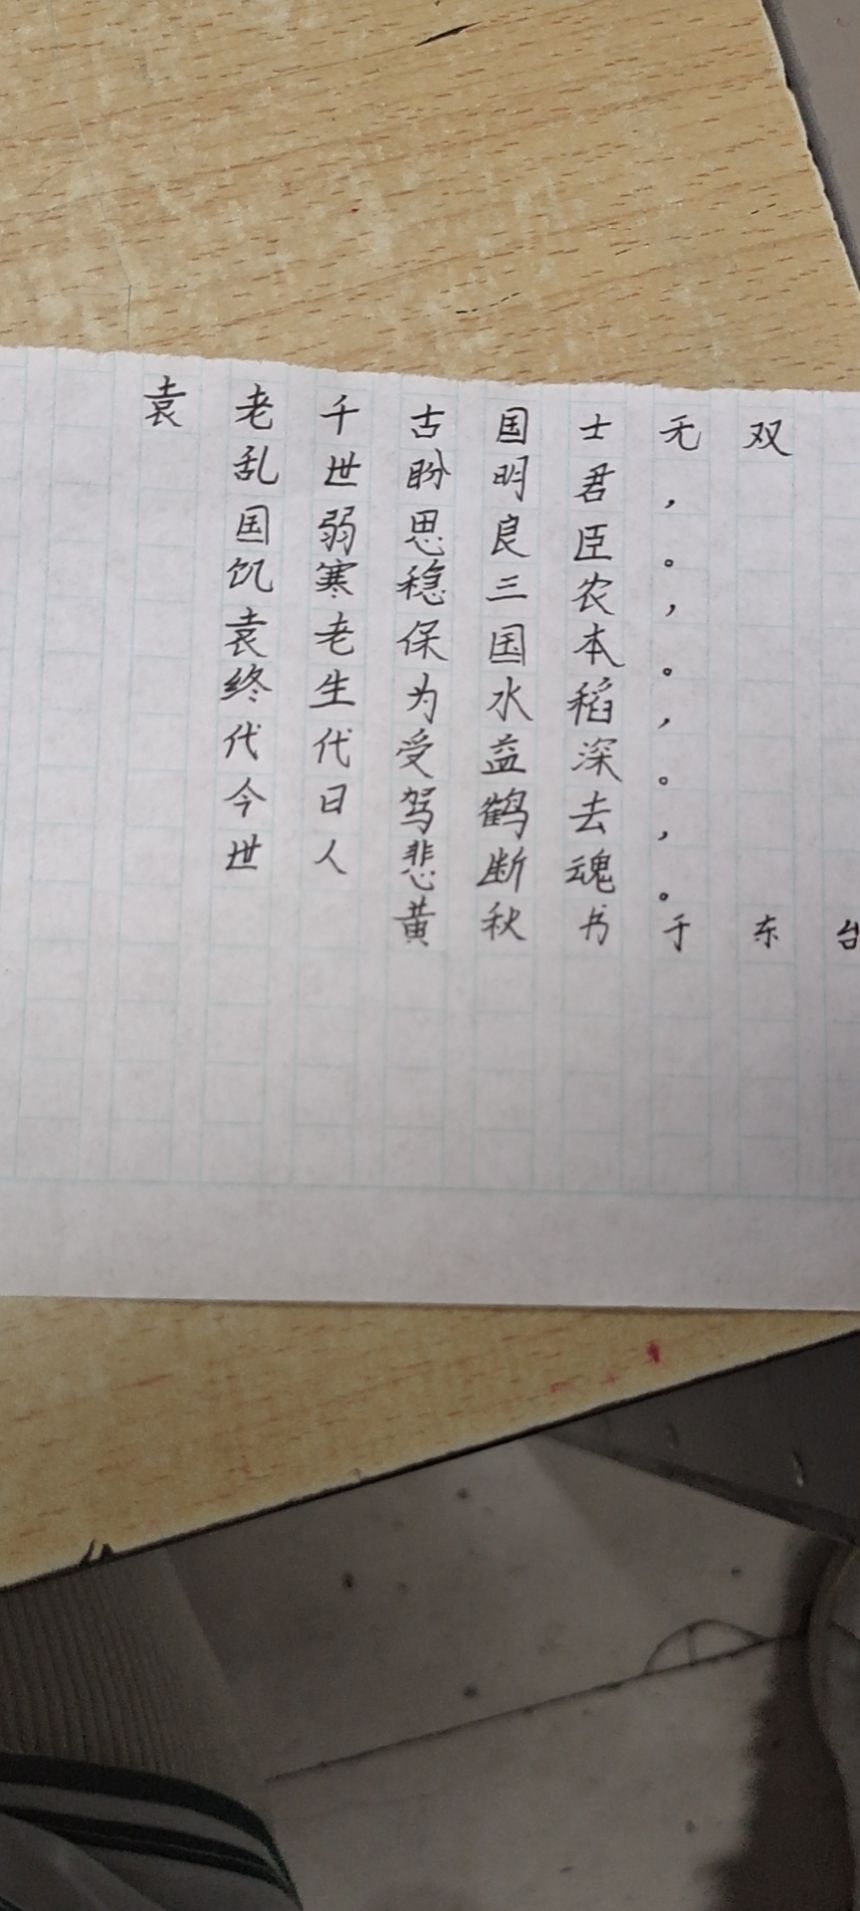 袁老千古国士无双
乱世盼明君，
国弱思良臣。
饥寒稳三农，
袁老保国本。
终生为水稻，
代代受益深。
今日驾鹤去，
世人悲断魂。
黄秋书于东台